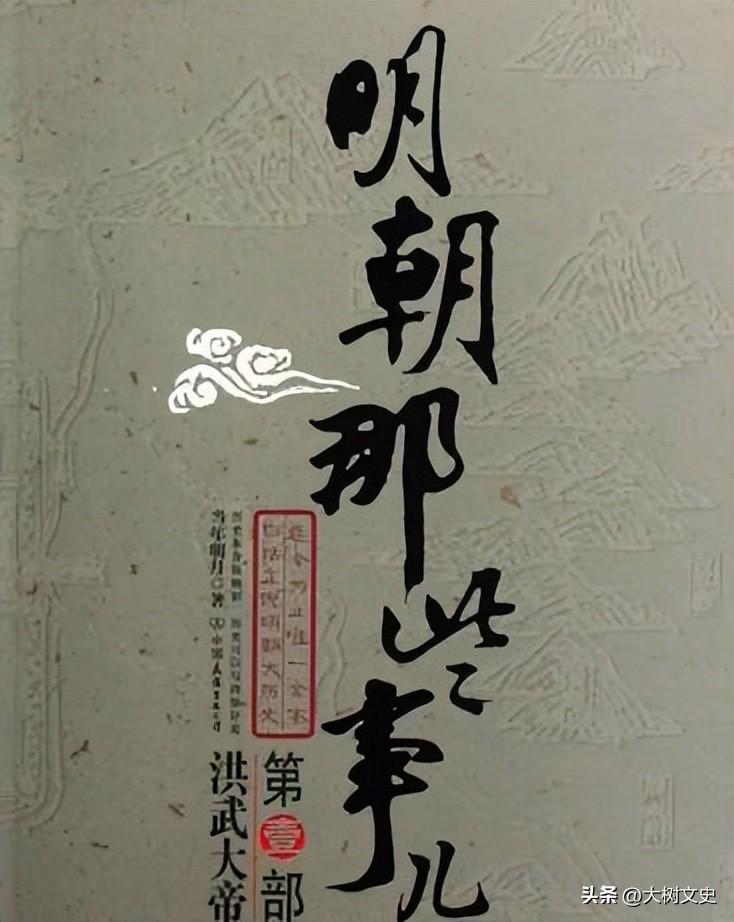 明朝那些事儿
迄今为止唯一全本
白话正说明朝大历史
当年明月◎著
第壹部
洪武大帝
头条 @大树文史